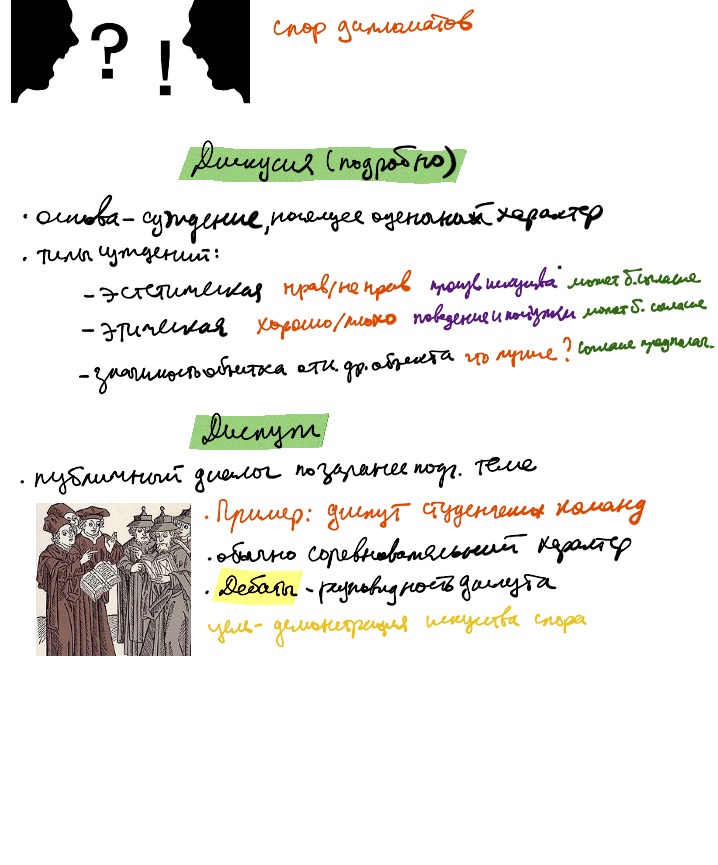 ? !
спор дипломатов
Дискусия (подробно)
• основа – суждение, носящее оценочный характер
• типы суждений:
– эстетическая нрав/не нрав произв искусства может б. согласие
– этическая хорошо/плохо поведение и поступки может б. согласие
– значимость объекта отн. др. объекта что лучше? согласие предполаг.
Диспут
• публичный диалог по заранее подг. теме
• Пример: диспут студенческих команд
• обычно соревновательный характер
• Дебаты – разновидность диспута
цель – демонстрация искусства спора